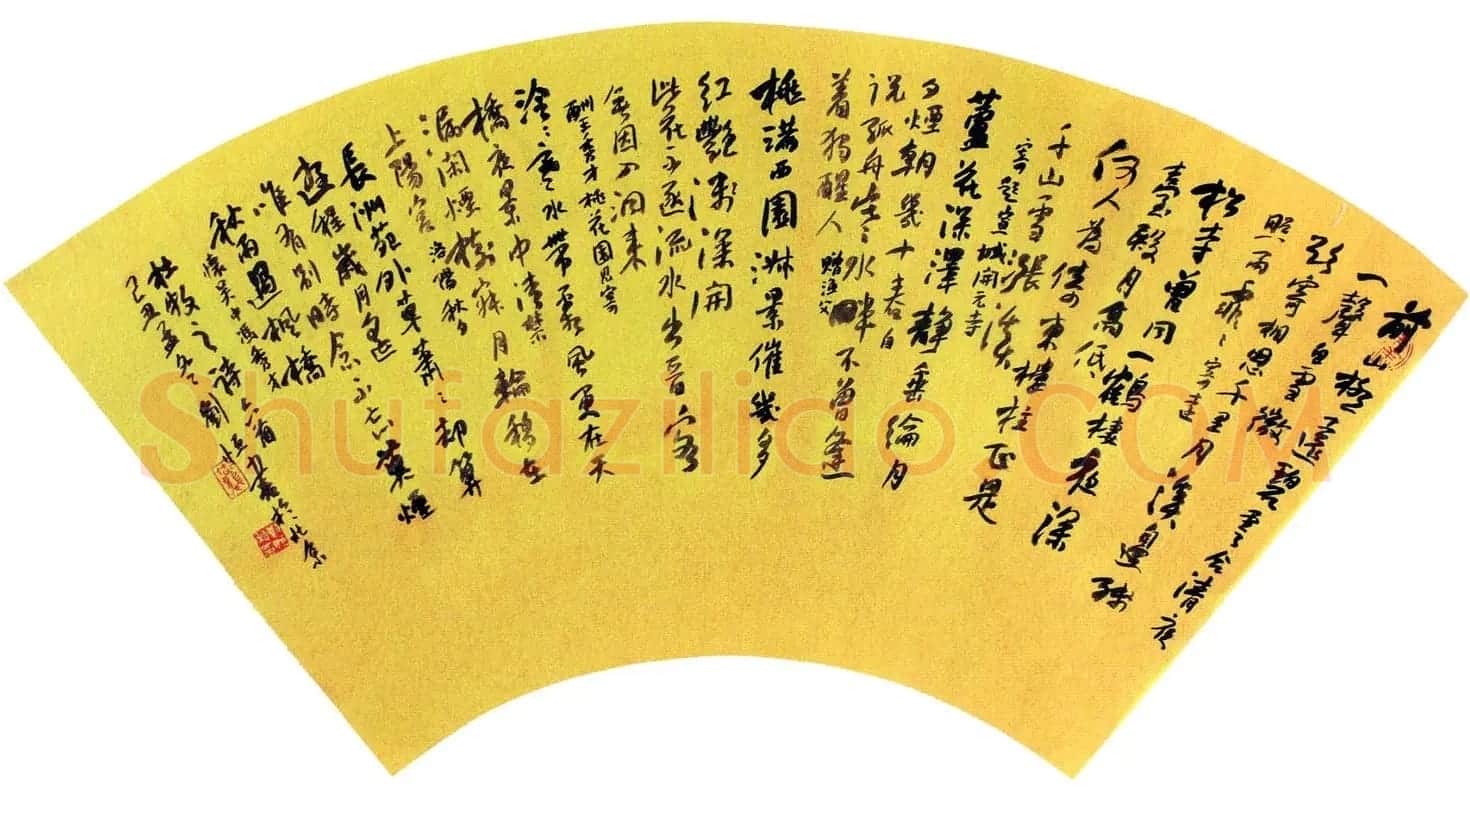 前山極遠碧雲合清夜
一聲白雪微
欲寄相思千里月溪邊殘
照雨霏霏 寄遠
松寺曾同一鶴棲夜深
臺殿月高低
何人為倚東樓柱正是
千山雪漲溪
寄題宣城開元寺
蘆花深澤靜垂綸月
夕煙朝幾十春自
說孤舟寒水畔不曾逢
著獨醒人 贈漁父
桃滿西園淑景催幾多
紅艷淺深開
此花不逐流水出晉客
無因入洞來
酬王秀才桃花園見寄
泠泠寒水帶霜風更在天
橋夜景中清禁
漏閑煙樹寂月輪移在
上陽宮 洛陽秋夕
長洲苑外草蕭蕭却算
遊程歲月遥
唯有別時今不忘暮煙
秋雨過楓橋
懷吳中馮秀才
杜牧之詩六首書於北京
己丑孟冬劉恆
Shufaziliao.COM